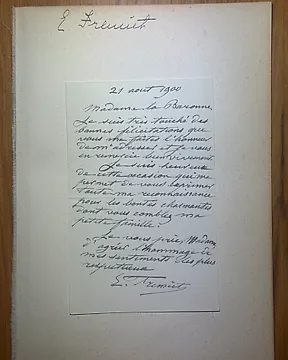 E Fremiet
21 aout 1900
Madame la Baronne
Je suis très touché des
bonnes félicitations que
vous me faites l'honneur
de m'adresser et je vous
en remercie bien vivement.
Je suis heureux
de cette occasion qui me
permet de vous exprimer
toute ma reconnaissance
pour les bontés charmantes
dont vous comblez ma
petite famille.
Je vous prie, Madame
d'agréer l'hommage de
mes sentiments les plus
respectueux
E. Fremiet